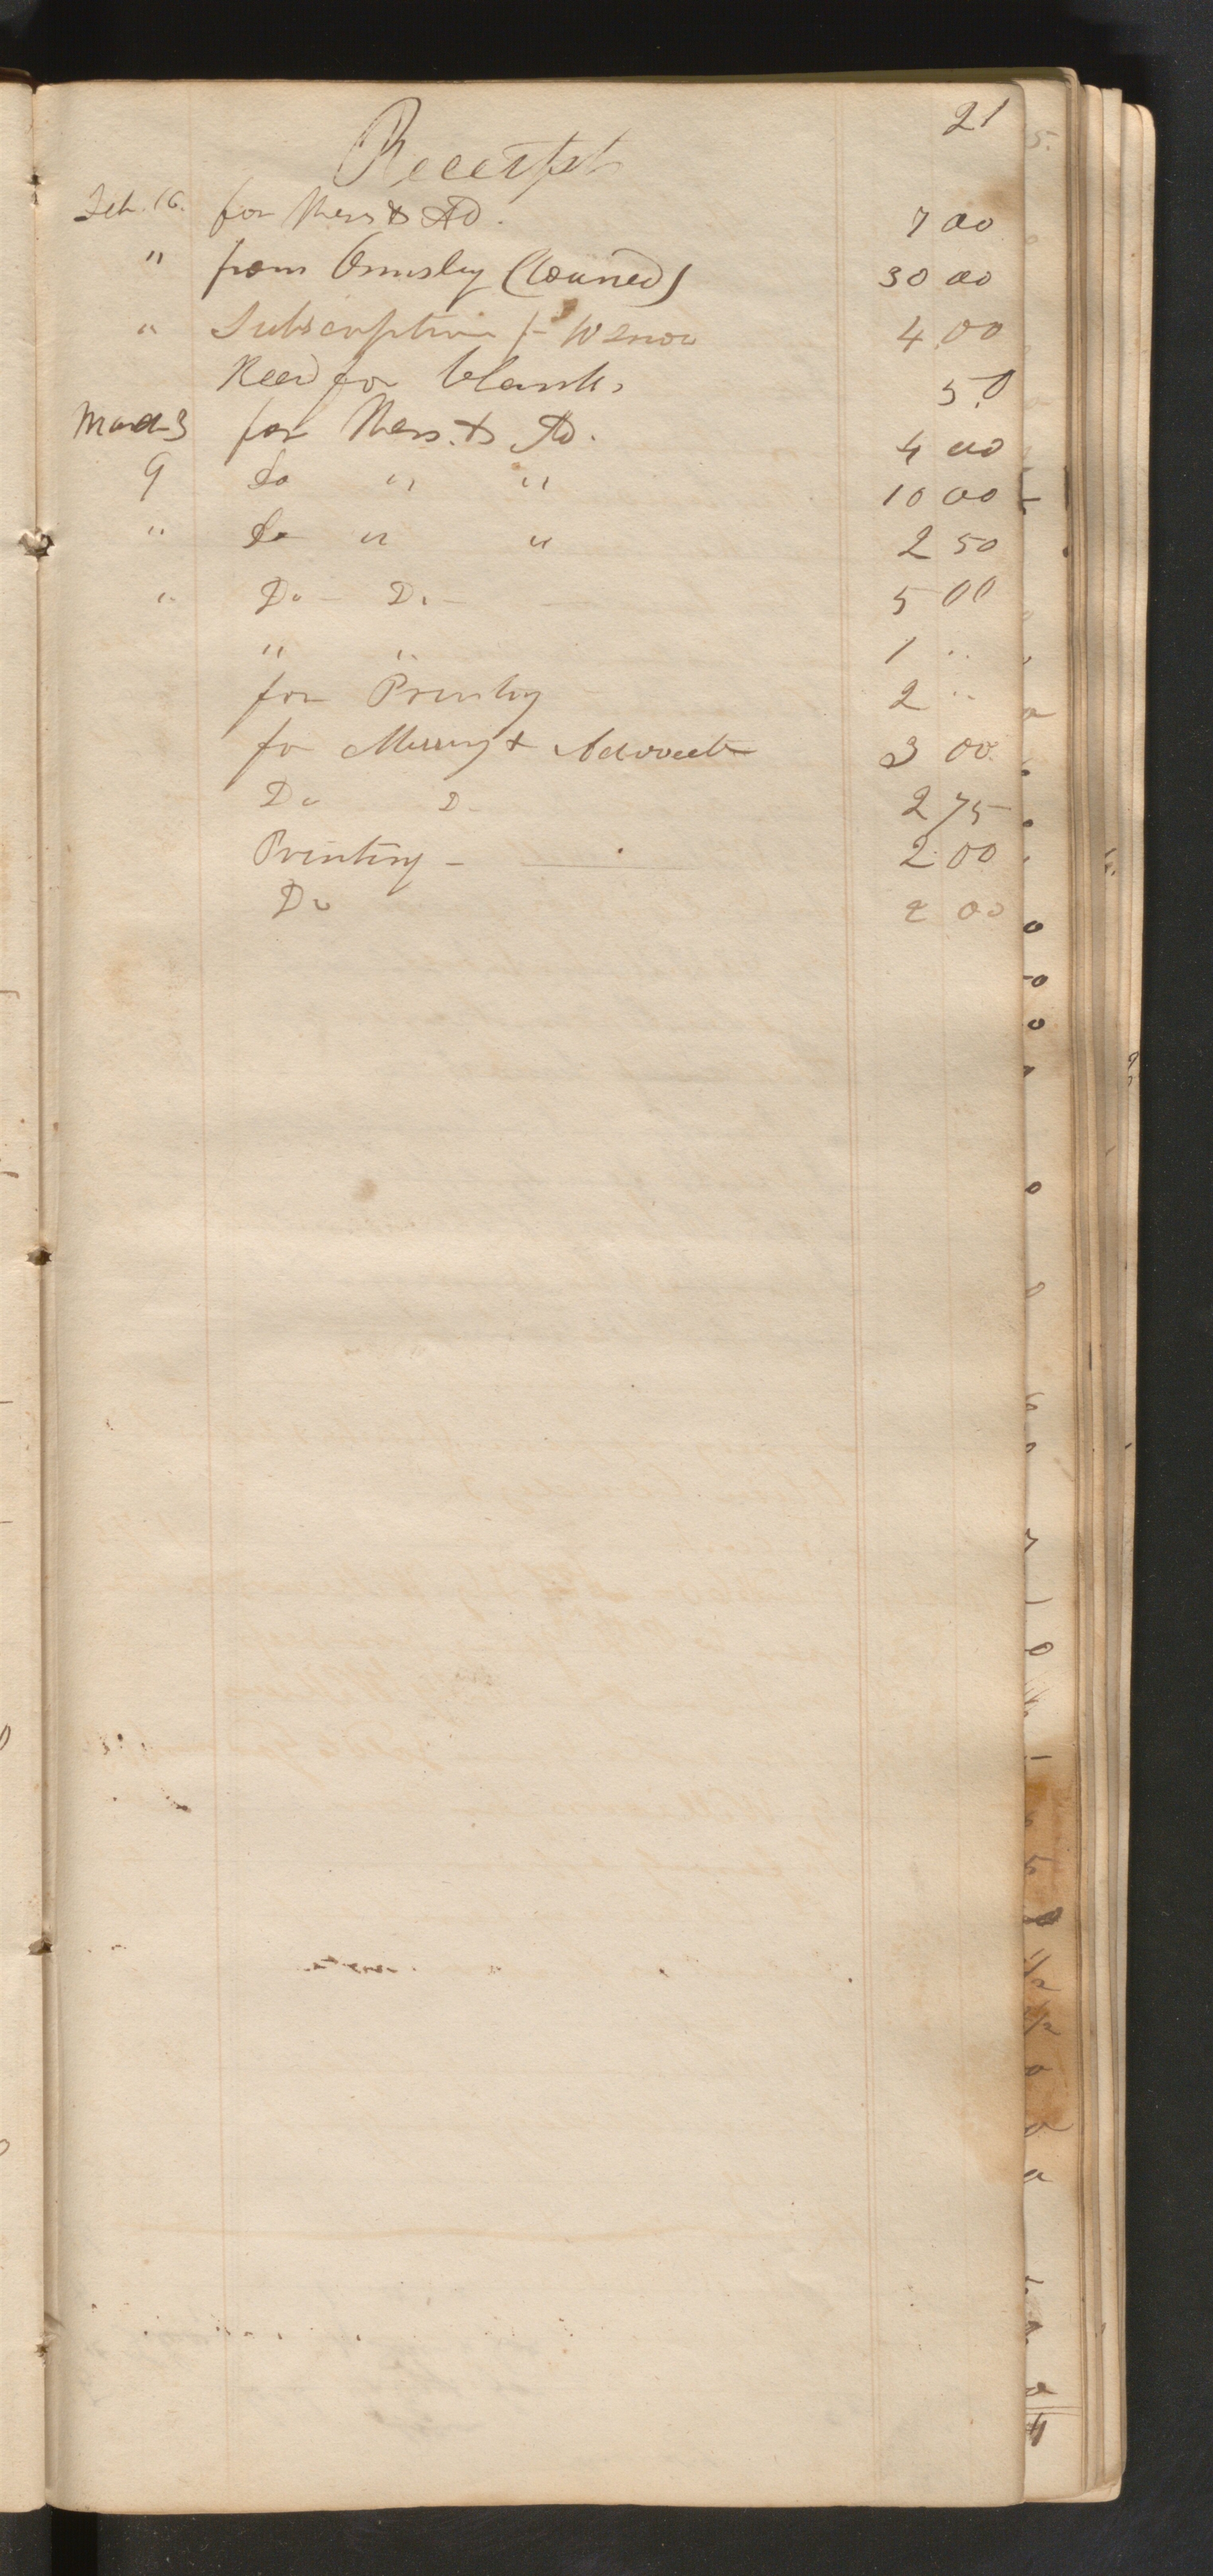 21
Receipts
Feb. 16. for Mess & Ad. 7 00
" from Ormsby (loaned) 30 00
" Subscription f- W Snow 4 00
Recd for blanks 50
March 3 for Mess. & Ad. 4 00
9 do " " 10 00
" do " " 2 50
" Do - Do - 5 00
" " 1 ..
for Printing 2 ..
for Messeng & Advocate 3 00
Do D- 2 75
Printing - 2 00
Do 2 00